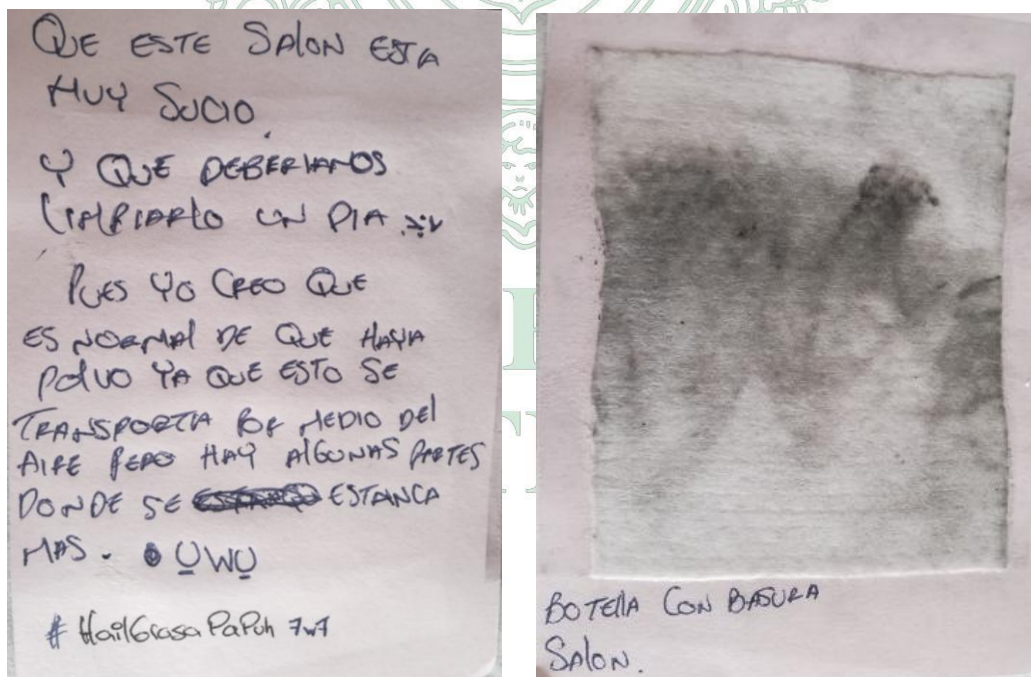 QUE ESTE SALON ESTA
MUY SUCIO.
Y QUE DEBERIAMOS
LIMPIARLO UN DIA :v
PUES YO CREO QUE
ES NORMAL DE QUE HAYA
POLVO YA QUE ESTO SE
TRANSPORTA POR MEDIO DEL
AIRE PERO HAY ALGUNAS PARTES
DONDE SE ESTANCA
MAS. UWU
# HailGrasaPaPuh 7w7
BOTELLA CON BASURA
SALON.